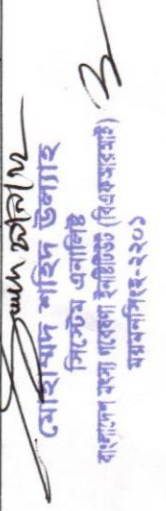 মোহাম্মদ শহিদ উল্যাহ
সিস্টেম এনালিষ্ট
বাংলাদেশ মৎস্য গবেষণা ইনষ্টিটিউট (বিএফআরআই)
ময়মনসিংহ-২২০১